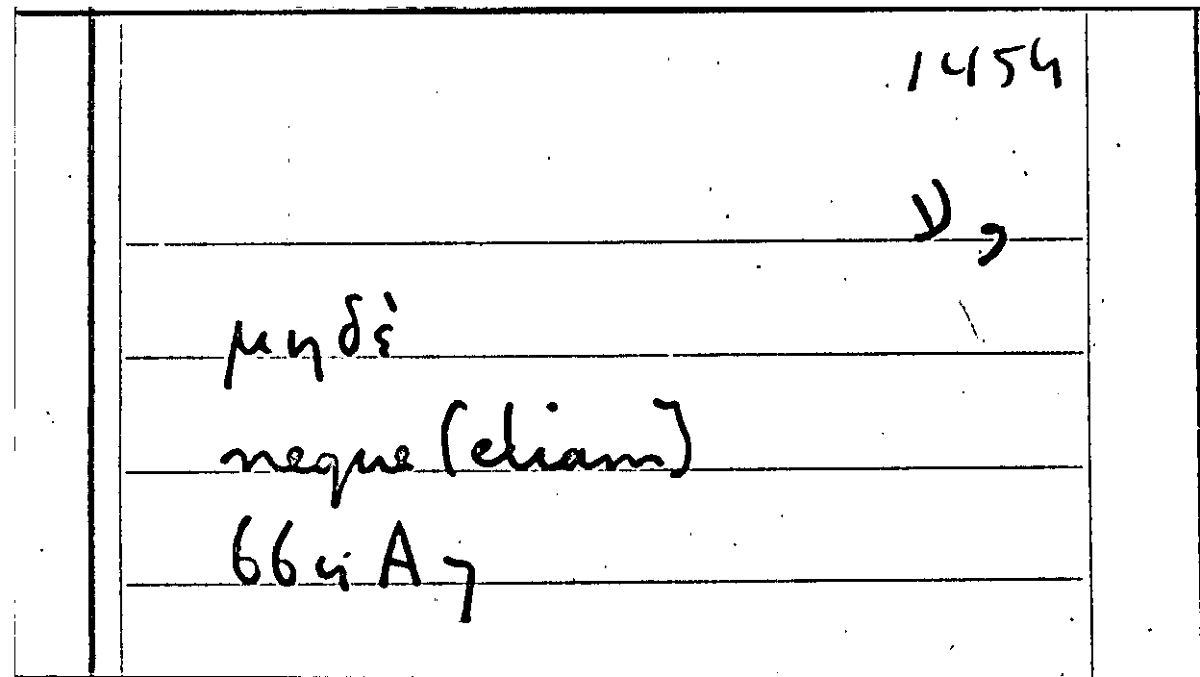 1454
μηδὲ
neque (etiam)
66